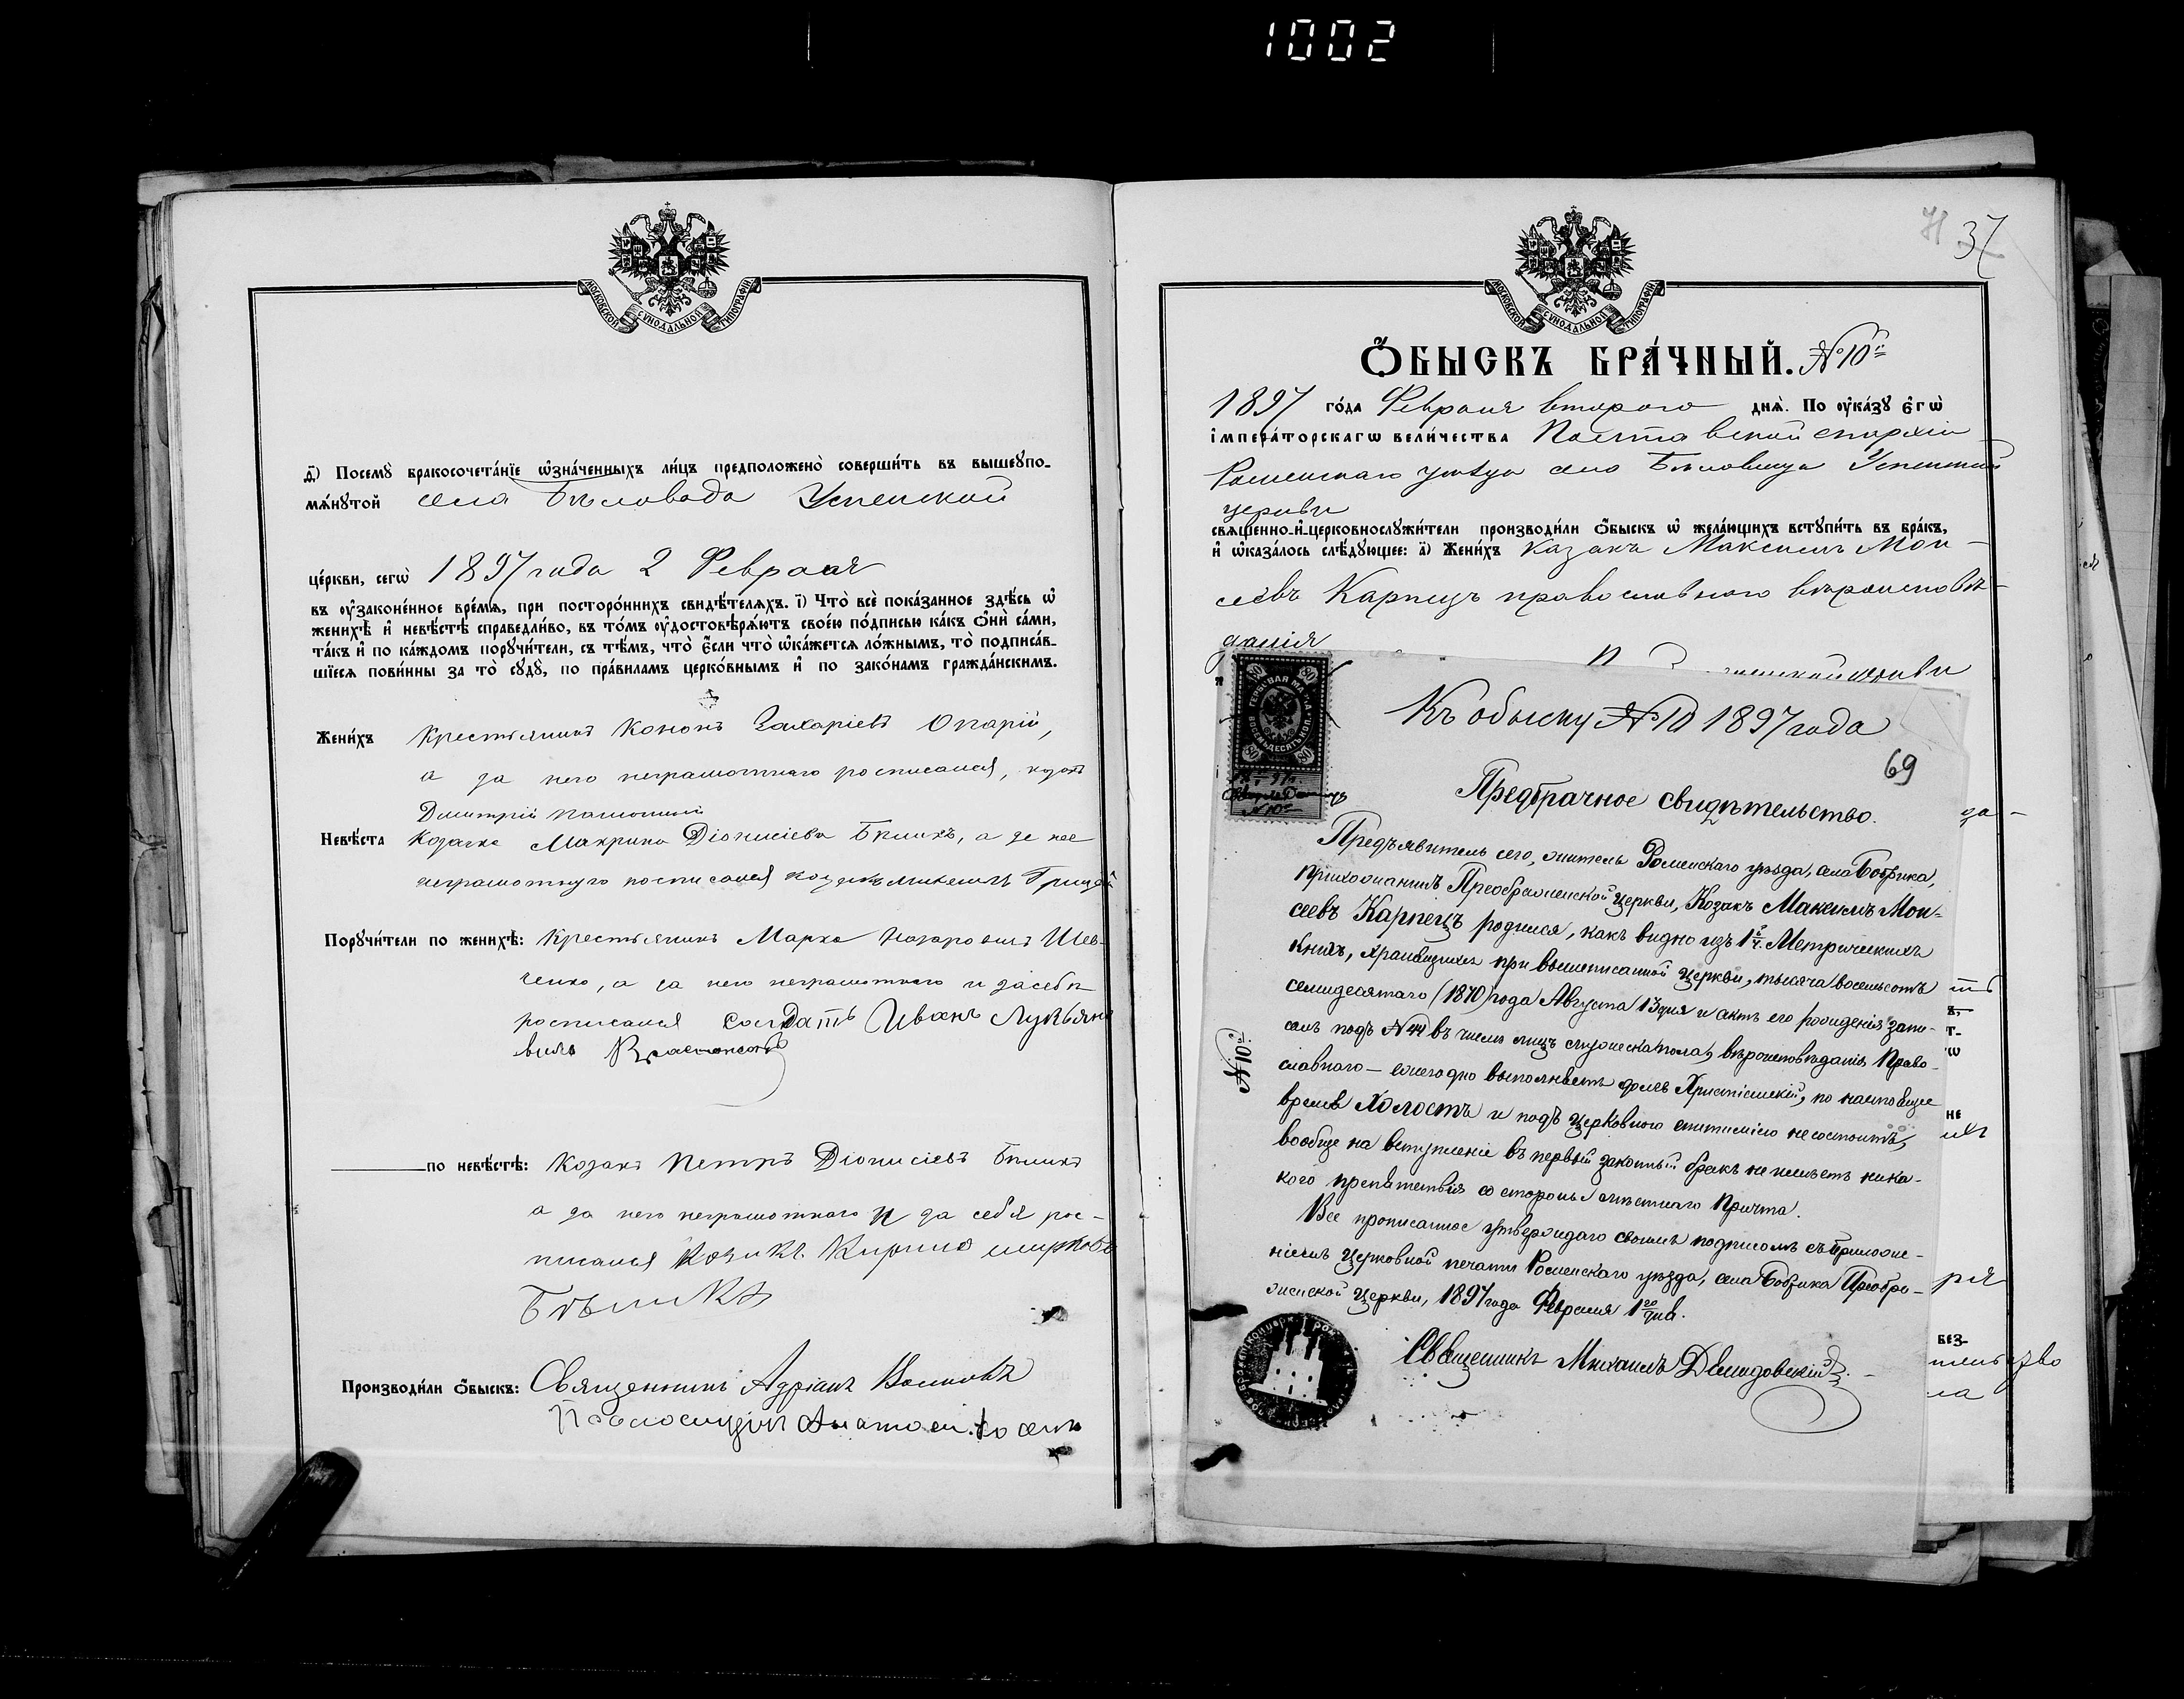 1002
МОСКОВСКОЙ СУНОДАЛЬНОЙ ТИПОГРАФІИ
д҃) Посемꙋ̀ бракосочета́нїе ѡ҆зна́ченныхъ ли́цъ предположено̀ соверши́ть въ вышеꙋпо-
мѧ́нꙋтой села Бѣловода Успенской
це́ркви, сегѡ̀ 1897 года 2 Февраля
въ ᲂу҆зако́ненное вре́мѧ, при посторо́ннихъ свидѣ́телѧхъ. і҃) Что̀ всѐ пока́занное здѣ́сь ѡ҆
женихѣ̀ и҆ невѣ́стѣ справедли́во, въ то́мъ ᲂу҆достовѣрѧ́ютъ свое́ю по́дписью ка́къ ѻ҆нѝ са́ми,
та́къ и҆ по ка́ждомъ порꙋчи́тели, съ тѣ́мъ, что̀ є҆́сли что̀ ѡ҆ка́жетсѧ ло́жнымъ, то̀ подписа́в-
шїесѧ пови́нны за то̀ сꙋдꙋ̀, по пра́виламъ церко́внымъ и҆ по зако́намъ гражда́нскимъ.
Жени́хъ Крестьянинъ Кононъ Захаріевъ Опарій,
а за него неграмотнаго росписался, козакъ
Дмитрій
Невѣ́ста Козачка Макрина Діонисіева Бѣликъ, а за нее
неграмотную росписался козакъ Грицай
Порꙋчи́тели по женихѣ̀: Крестьянинъ Марко Назаровичъ Шев-
ченко, а за него неграмотнаго и за себя
росписался солдатъ Иванъ Лукьяно
вичъ
по невѣ́стѣ: Козакъ Петръ Діонисіевъ Бѣликъ
а за него неграмотнаго и за себя рос-
писался Козакъ Кирило
Бѣликъ
Производи́ли ѻ҆́быскъ: Священникъ Адріанъ Волковъ
Псаломщикъ
37
МОСКОВСКОЙ СУНОДАЛЬНОЙ ТИПОГРАФІИ
Ѻ҆́БЫСКЪ БРА́ЧНЫЙ. №10й
1897 го́да Февраля второго днѧ̀. По ᲂу҆ка́зꙋ є҆гѡ̀
і҆мпера́торскагѡ вели́чества Полтавской епархіи
Роменскаго уѣзда села Бѣловода Успенской
церкви
свѧще́нно-и҆-церковнослꙋжи́тели производи́ли ѻ҆́быскъ ѡ҆ жела́ющихъ встꙋпи́ть въ бра́къ,
и҆ ѡ҆каза́лось слѣ́дꙋющее: а҃) Жени́хъ Казакъ Максимъ Мои-
сеевъ Карпецъ православнаго вѣроисповѣ-
данія
церкви
80 80
ГЕРБОВАЯ МАРКА
ВОСЕМЬДЕСЯТЪ КОП.
80 80
Къ обыску №10 1897 года
69
Предбрачное свидѣтельство.
Предъявитель сего, житель Роменскаго уѣзда, села Бобрика,
прихожанинъ Преображенской церкви, Козакъ Максимъ Мои-
сеевъ Карпецъ родился, какъ видно изъ 1й ч. Метрическихъ
книгъ, хранящихся при вышеписанной церкви, тысяча восемьсотъ
семидесятаго (1870) года Августа 13 дня и актъ его рожденія запи-
санъ подъ №44 въ числѣ лицъ мужеска пола, вѣроисповѣданія Право-
славнаго — ежегодно выполняетъ долгъ Христіанскій, по настоящее
время Холостъ и подъ церковною епитиміею не состоитъ,
вообще на вступленіе въ первый законный бракъ не имѣетъ ника-
кого препятствія со стороны мѣстнаго Причта.
Все прописанное утверждаю своимъ подписомъ съ приложе-
ніемъ церковной печати Роменскаго уѣзда, села Бобрика Преобра-
женской церкви, 1897 года Февраля 1го дня.
Священникъ Михаилъ Демидовскій
№10й
да-
тъ
НЕ
рія
БЕЗ-
ла